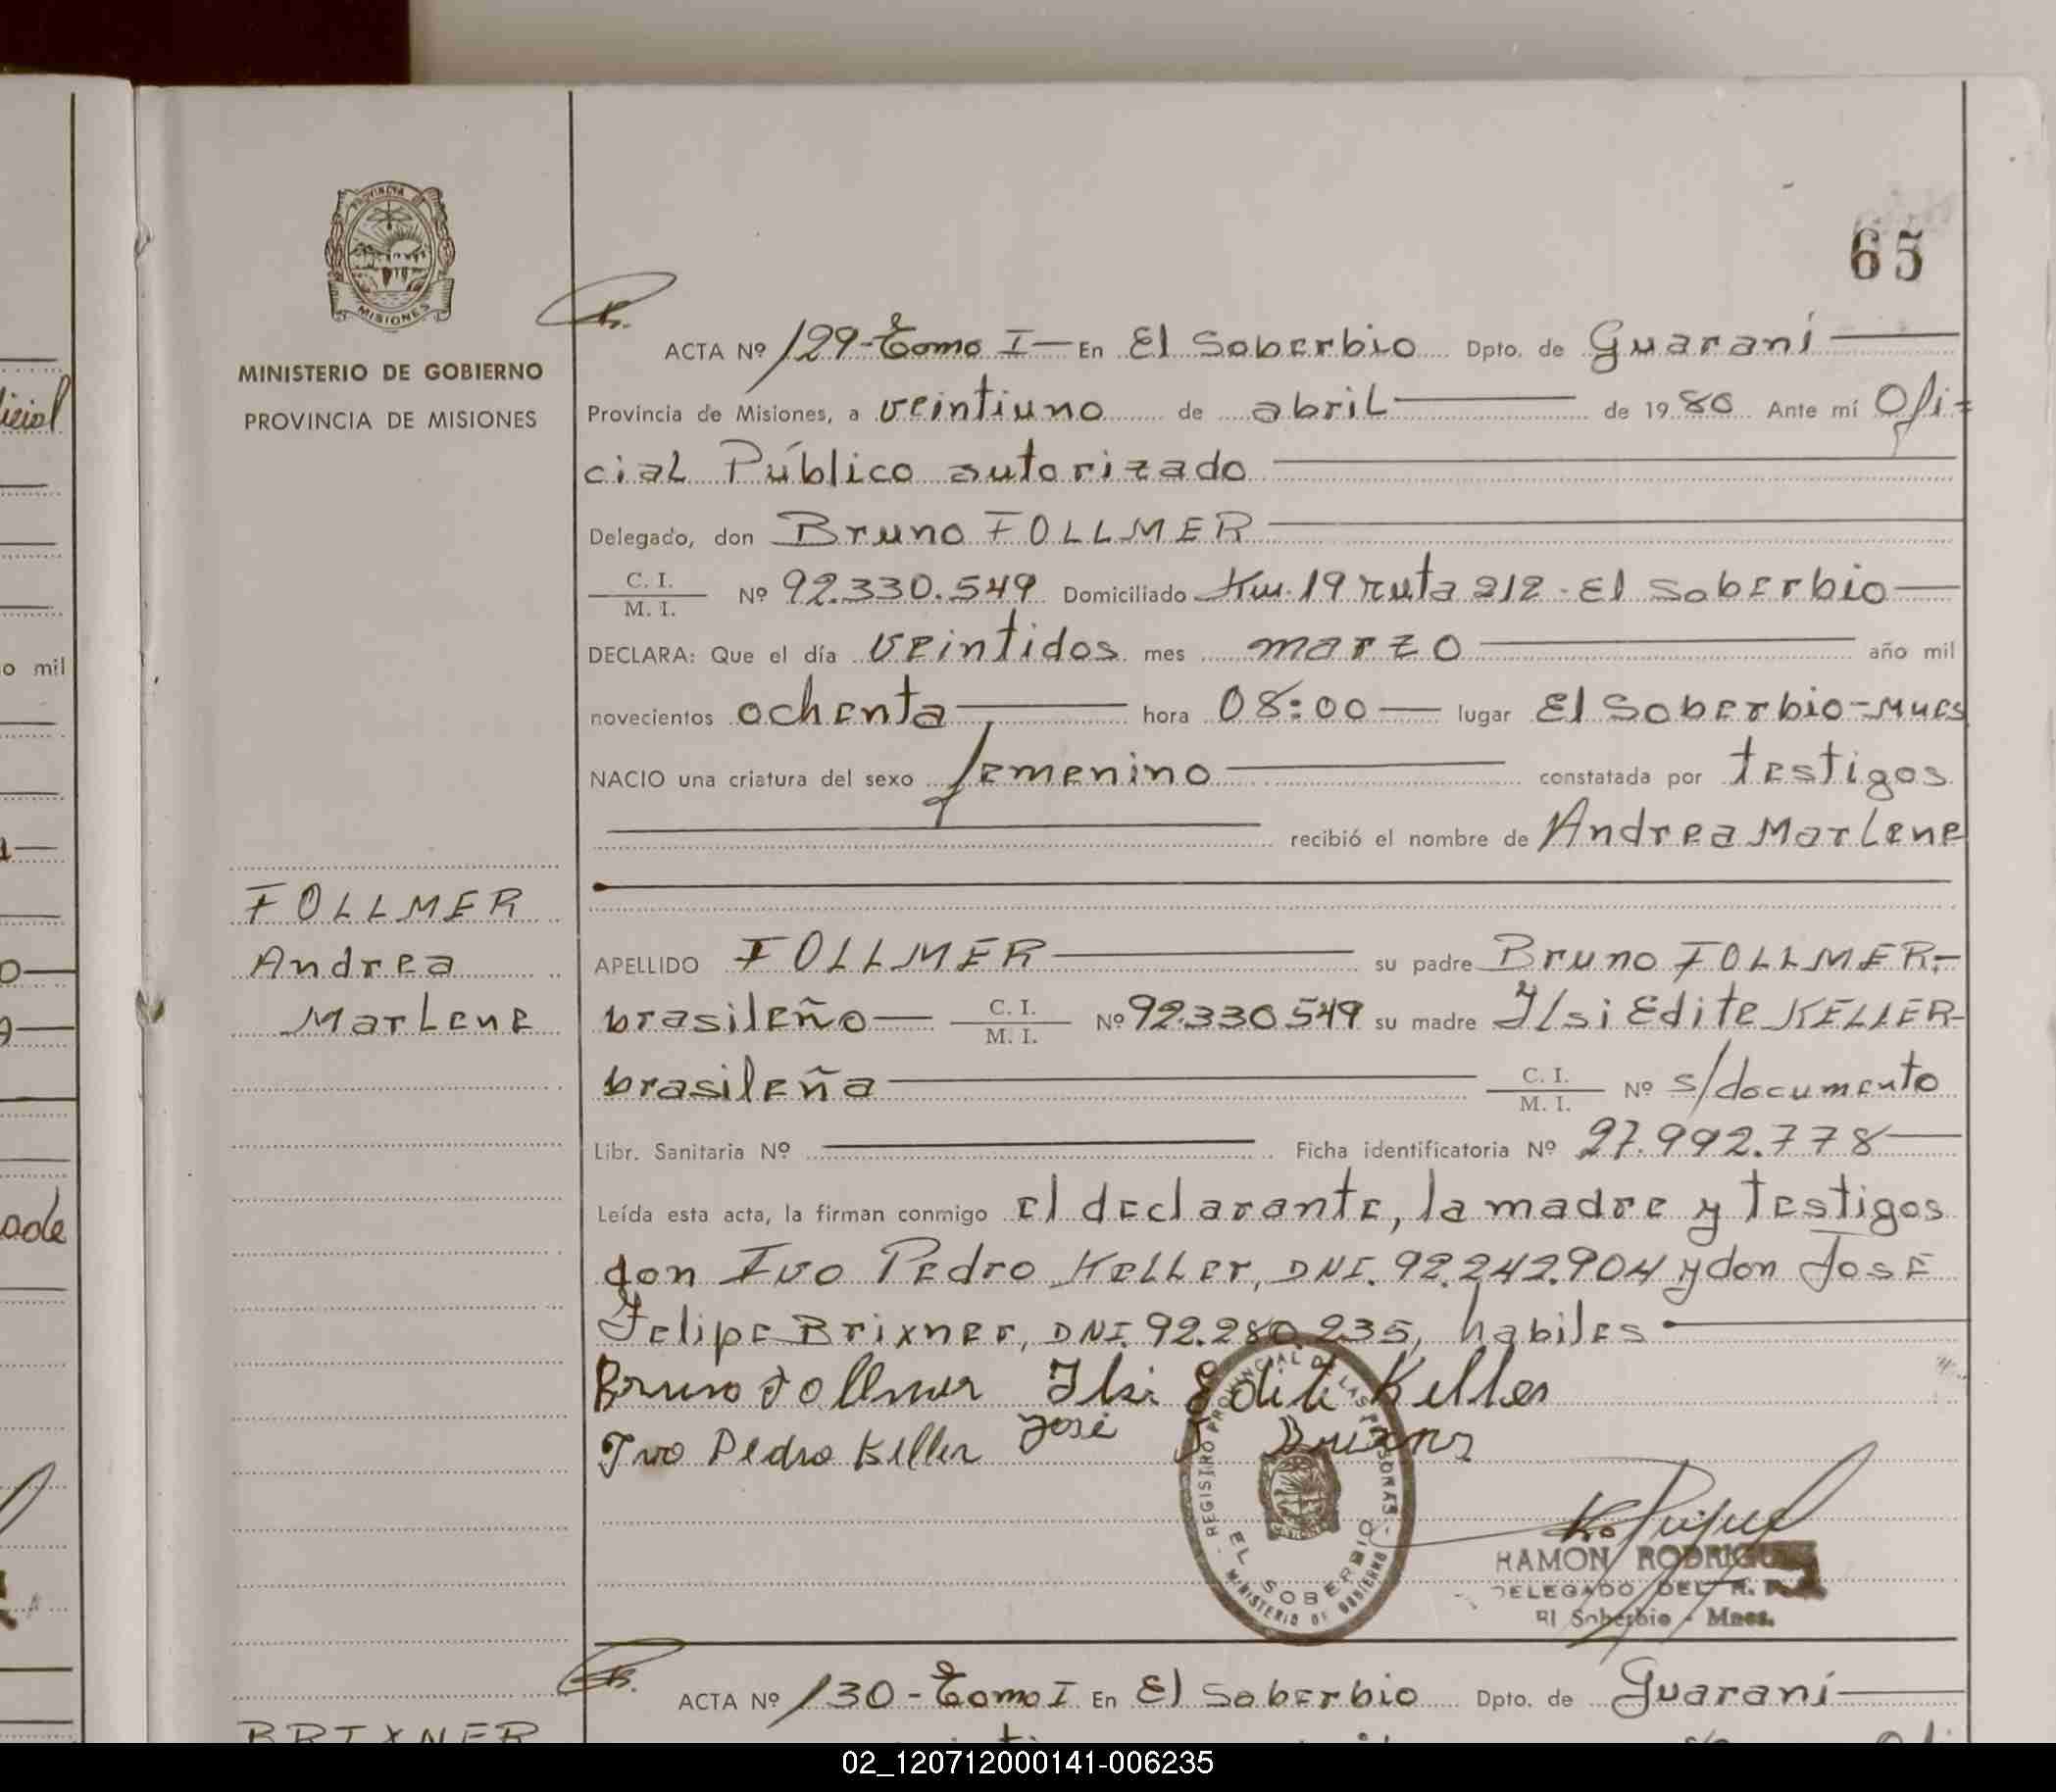 PROVINCIA DE
MISIONES
MINISTERIO DE GOBIERNO
PROVINCIA DE MISIONES
FOLLMER
Andrea
Marlene
BRIXNER
65
ACTA Nº 129-Tomo I- En El Soberbio Dpto. de Guaraní
Provincia de Misiones, a veintiuno de abril de 1980 Ante mí Ofi-
cial Público autorizado
Delegado, don Bruno FOLLMER
C. I. / M. I. Nº 92.330.549 Domiciliado Km. 19 ruta 212 - El Soberbio
DECLARA: Que el día veintidos mes marzo año mil
novecientos ochenta hora 08:00 lugar El Soberbio-Mnes
NACIO una criatura del sexo femenino constatada por testigos
recibió el nombre de Andrea Marlene
APELLIDO FOLLMER su padre Bruno FOLLMER.-
brasileño C. I. / M. I. Nº 92330549 su madre Ilsi Edite KELLER-
brasileña C. I. / M. I. Nº s/documento
Libr. Sanitaria Nº Ficha identificatoria Nº 27.992.778
Leída esta acta, la firman conmigo el declarante, la madre y testigos
don Ivo Pedro Keller, DNI. 92.242.904 y don José
Felipe Brixner, DNI. 92.280.235, habiles
Bruno Follmer Ilsi Edite Keller
Ivo Pedro Keller José F Brixner
REGISTRO PROVINCIAL DE LAS PERSONAS
EL SOBERBIO
MINISTERIO DE GOBIERNO
RAMON RODRIGUEZ
DELEGADO DEL R. P.
El Soberbio - Mnes.
ACTA Nº 130-Tomo I En El Soberbio Dpto. de Guaraní
icial
o mil
02_120712000141-006235